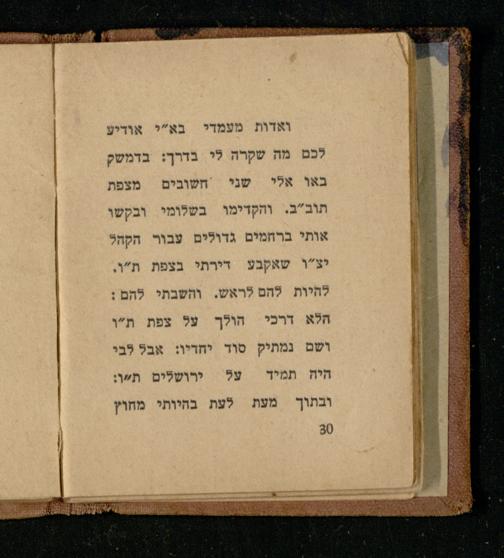 ואדות מעמדי בא״י אודיע
לכם מה שקרה לי בדרך: בדמשק
באו אלי שני חשובים מצפת
תוב״ב. והקדימו בשלומי ובקשו
אותי ברחמים גדולים עבור הקהל
יצ״ו שאקבע דירתי בצפת ת״ו.
להיות להם לראש. והשבתי להם:
הלא דרכי הולך על צפת ת״ו
ושם נמתיק סוד יחדיו: אבל לבי
היה תמיד על ירושלים ת״ו:
ובתוך מעת לעת בהיותי מחוץ
30